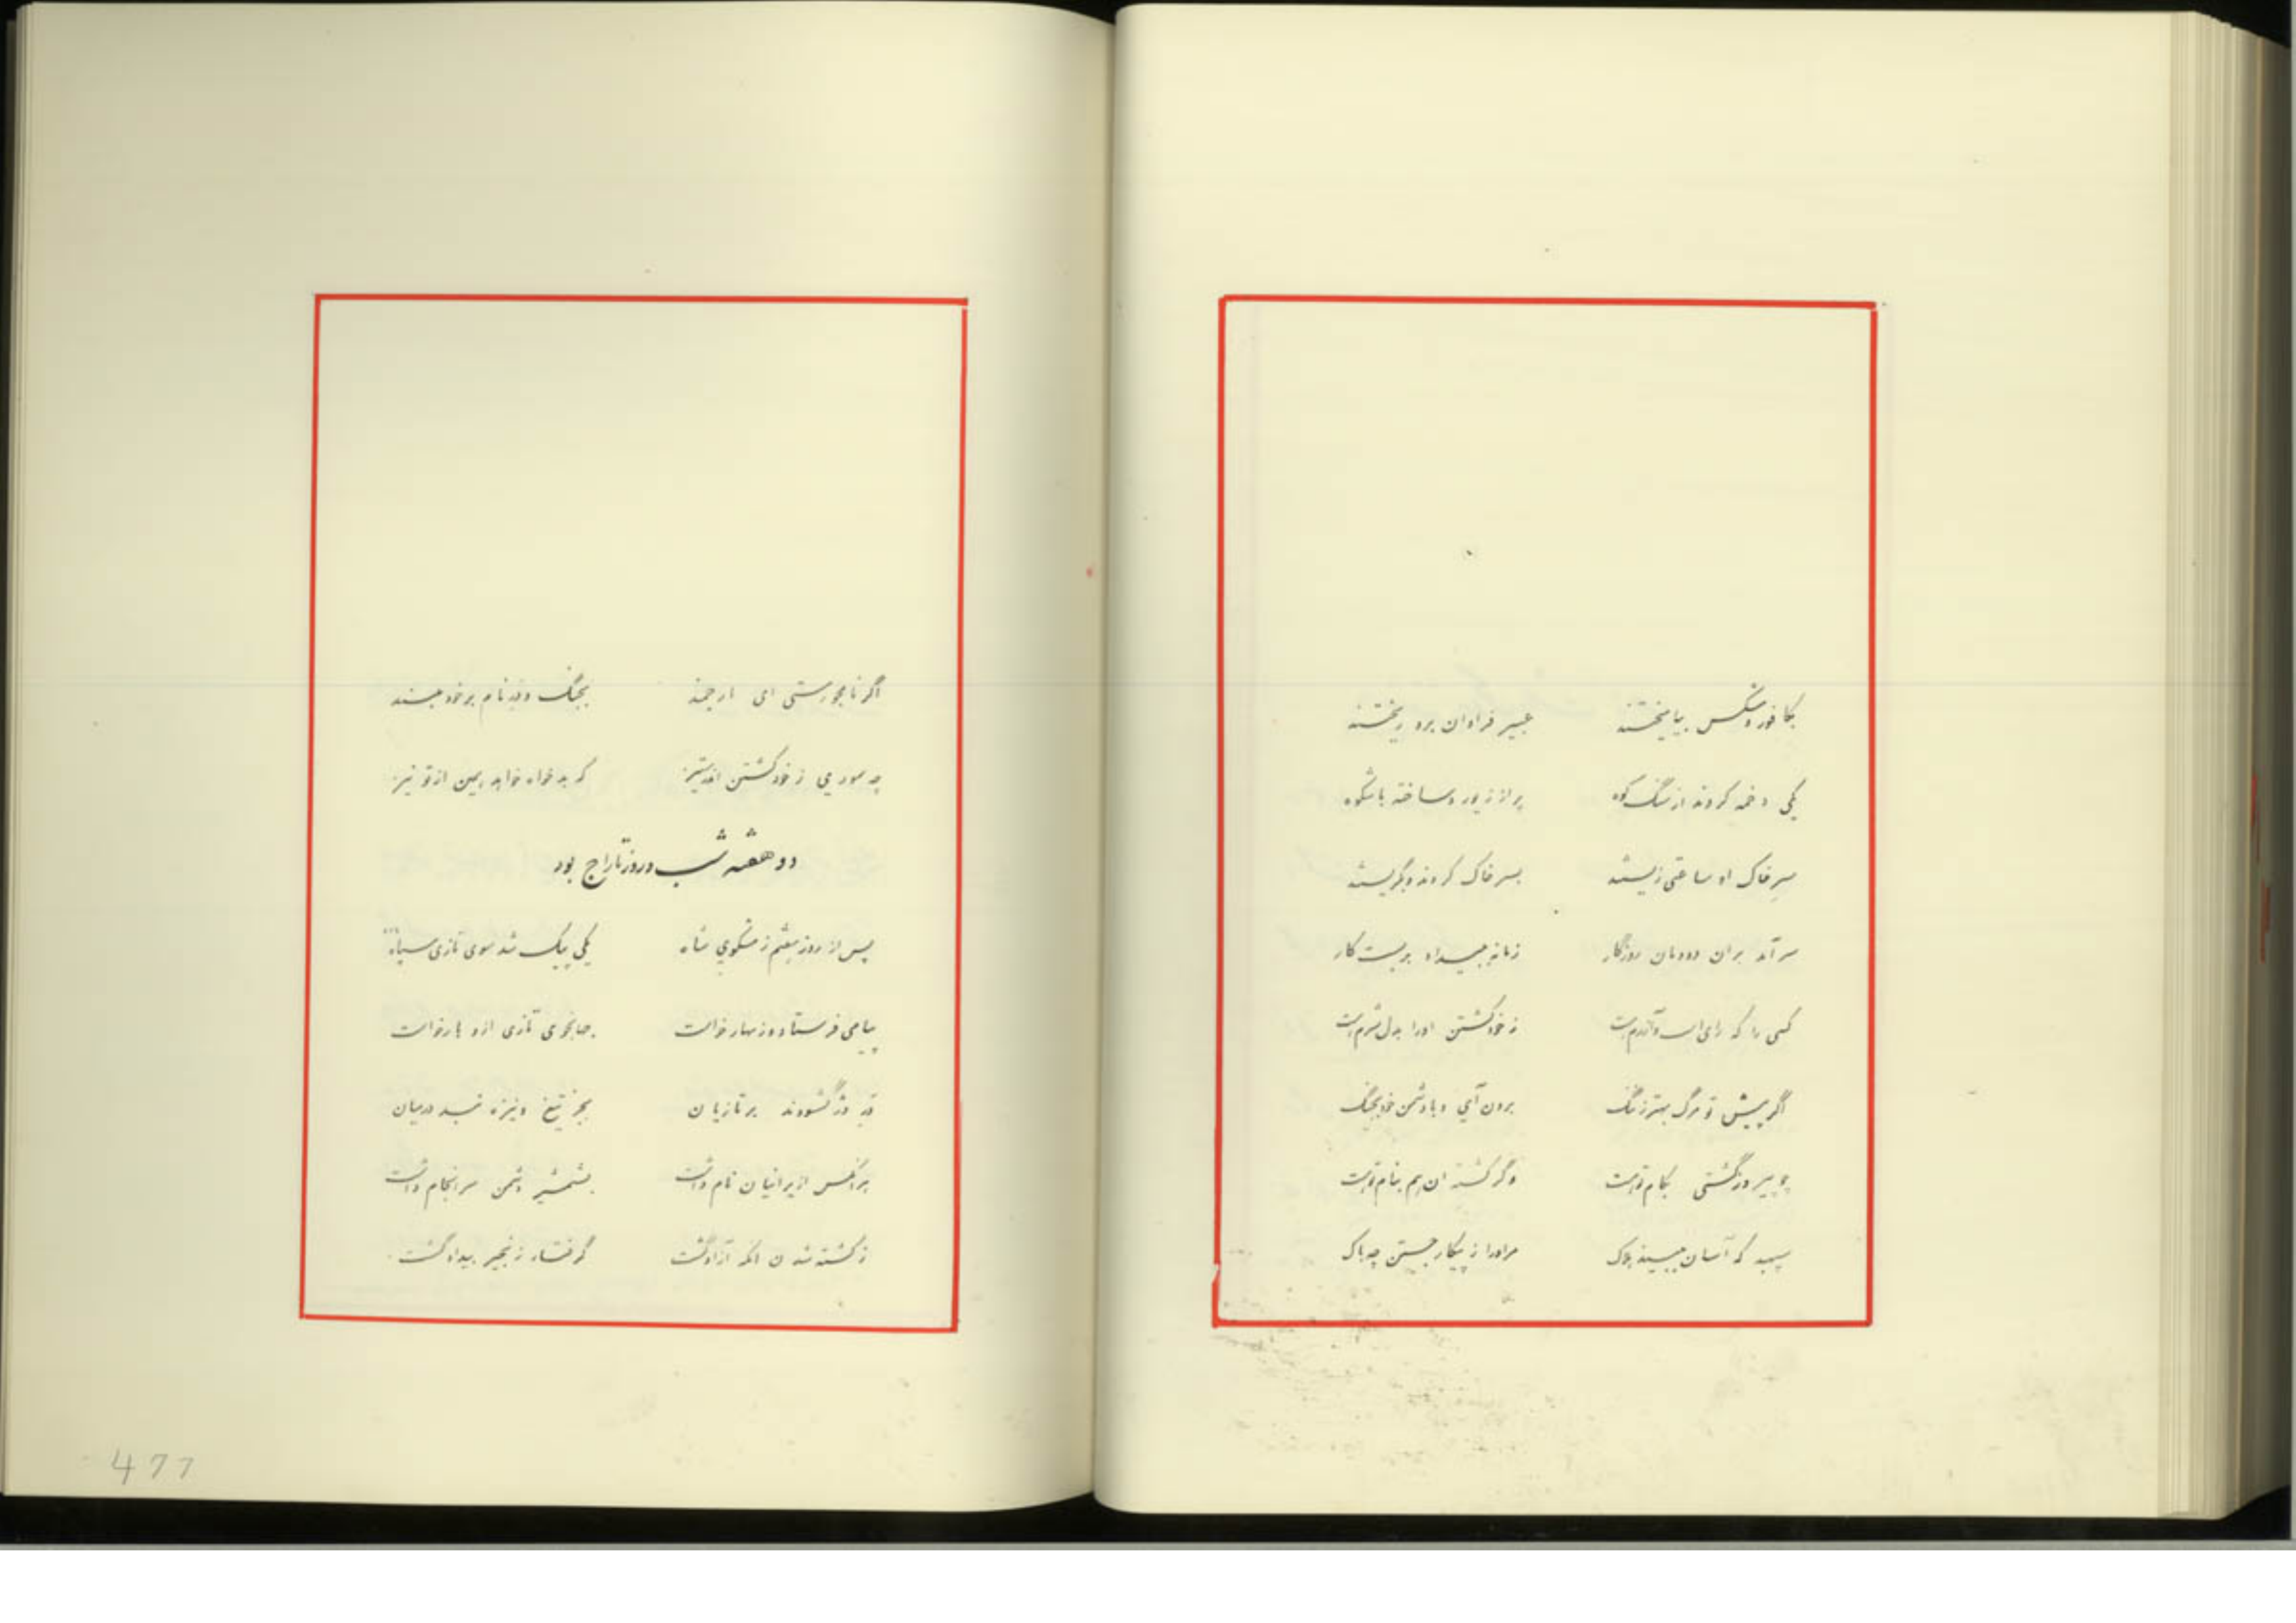 بکافور و مشکس بیامیختند عبیر فراوان برو ریختند
یکی دخمه کردند از سنگ کوه پر از زیور و ساخته باشکوه
سر خاک او ساعتی زیستند بسر خاک کردند و بگریستند
سر آمد بران دودمان روزگار زمانه ببیداد بربست کار
کسی را که رای است و آزرم است ز خود کشتن او را بدل شرم است
اگر پیش تو مرگ بهتر ز ننگ برون آی و با دشمن خود بجنگ
چو پیروز گشتی بکام تو است وگر کشته ان هم بنام تو است
سپهبد که آسان ببیند هلاک مر او را ز پیکار جستن چه باک
اگر نامجو رستی ای ارجمند بجنگ و بد نام بر خود مبند
چه سود می ز خود کشتن اندر ستیز که بدخواه خواهد همین از تو نیز
دو هفته شب و روز تاراج بود
پس از روز هشتم ز مشکوی شاه یکی پیک شد سوی تازی سپاه
پیامی فرستاد و زنهار خواست جهانجوی تازی ازو بار خواست
در دژ گشودند بر تازیان بجز تیغ و نیزه نبد در میان
هر آنکس از ایرانیان نام داشت بشمشیر دشمن سرانجام داشت
ز کشته شدن انکه آزاد گشت گرفتار زنجیر بیداد گشت
477